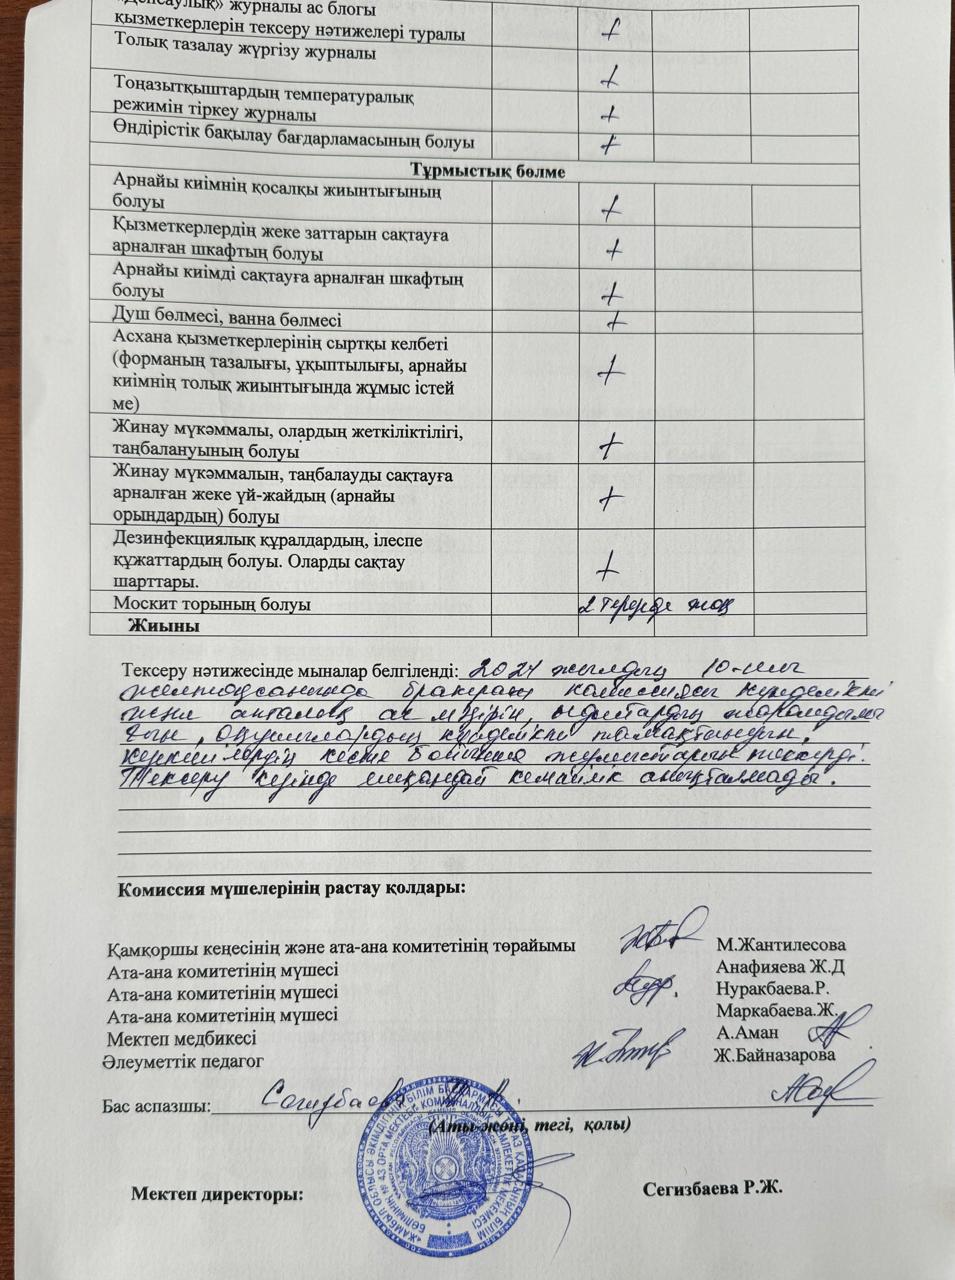 «Денсаулық» журналы ас блогы
қызметкерлерін тексеру нәтижелері туралы +
Толық тазалау жүргізу журналы +
Тоңазытқыштардың температуралық
режимін тіркеу журналы +
Өндірістік бақылау бағдарламасының болуы +
Тұрмыстық бөлме
Арнайы киімнің қосалқы жиынтығының
болуы +
Қызметкерлердің жеке заттарын сақтауға
арналған шкафтың болуы +
Арнайы киімді сақтауға арналған шкафтың
болуы +
Душ бөлмесі, ванна бөлмесі +
Асхана қызметкерлерінің сыртқы келбеті
(форманың тазалығы, ұқыптылығы, арнайы +
киімнің толық жиынтығында жұмыс істей
ме)
Жинау мүкәммалы, олардың жеткіліктілігі,
таңбалануының болуы +
Жинау мүкәммалын, таңбалауды сақтауға
арналған жеке үй-жайдың (арнайы +
орындардың) болуы
Дезинфекциялық құралдардың, ілеспе
құжаттардың болуы. Оларды сақтау +
шарттары.
Москит торының болуы 2 терезеде жоқ
Жиыны
Тексеру нәтижесінде мыналар белгіленді: 2024 жылдың 10-шы
желтоқсанында бракераж комиссиясы күнделікті
және апталық ас мәзірін, ыдыстардың жарамдылы
ғын, оқушылардың күнделікті тамақтануын,
кесте бойынша жұмыстарын тексерді.
Тексеру кезінде ешқандай кемшілік анықталмады.
Комиссия мүшелерінің растау қолдары:
Қамқоршы кеңесінің және ата-ана комитетінің төрайымы М.Жантилесова
Ата-ана комитетінің мүшесі Анафияева Ж.Д
Ата-ана комитетінің мүшесі Нуракбаева.Р.
Ата-ана комитетінің мүшесі Маркабаева.Ж.
Мектеп медбикесі А.Аман
Әлеуметтік педагог Ж.Байназарова
Бас аспазшы:
(Аты-жөні, тегі, қолы)
Мектеп директоры: Сегизбаева Р.Ж.